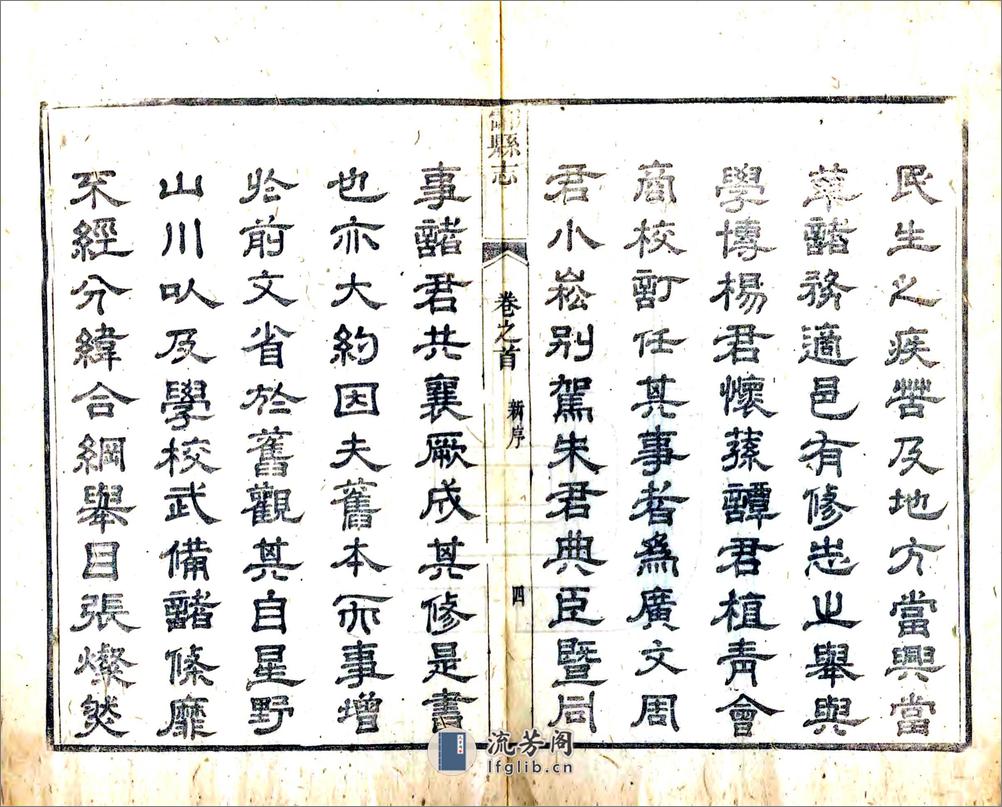 民生之疾苦及地方當興當
革諸務適邑有修志之舉與
學博楊君懷蓀譚君植青會
商校訂任其事者為廣文周
君小崧别駕朱君典臣暨同
縣志
卷之首
新序
四
事諸君共襄厥成其修是書
也亦大約因夫舊本而事增
於前文省於舊觀其自星野
山川以及學校武備諸條靡
不經分緯合綱舉目張燦然
流芳阁
lfglib.cn